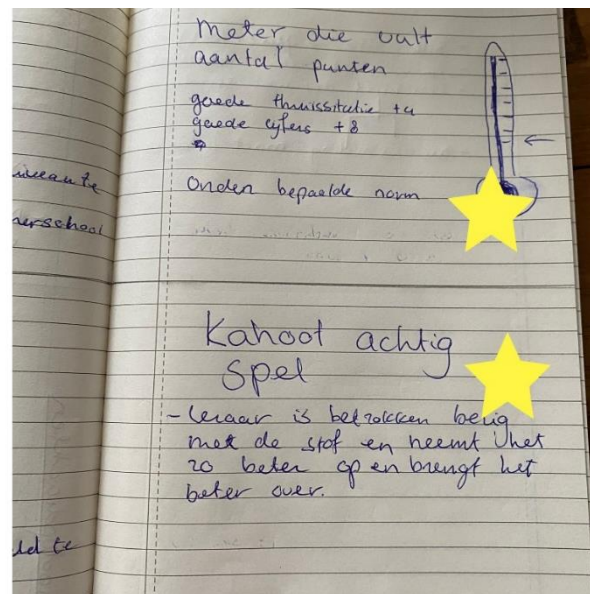 Meter die vult
aantal punten
goede thuissitatie +4
goede cijfers +8
Onder bepaalde norm
Kahoot achtig
spel
- leraar is betrokken bezig
met de stof en neemt het
zo beter op en brengt het
beter over.
nerschool
ld te